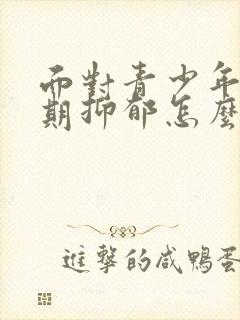 而對青少年
期抑郁怎麽
進擊的咸鴨蛋